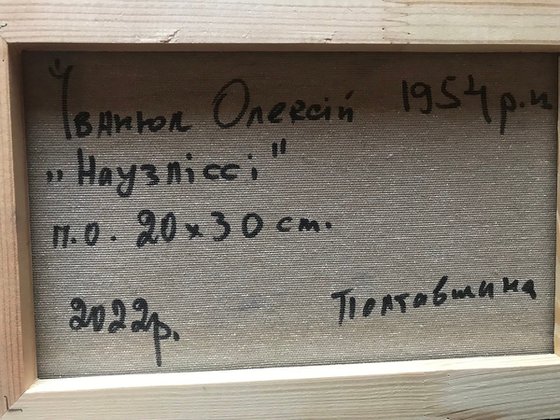 Іванюк Олексій 1954 р.н
„Наузліссі"
п.о. 20х30 см.
2022р.
Полтавщина